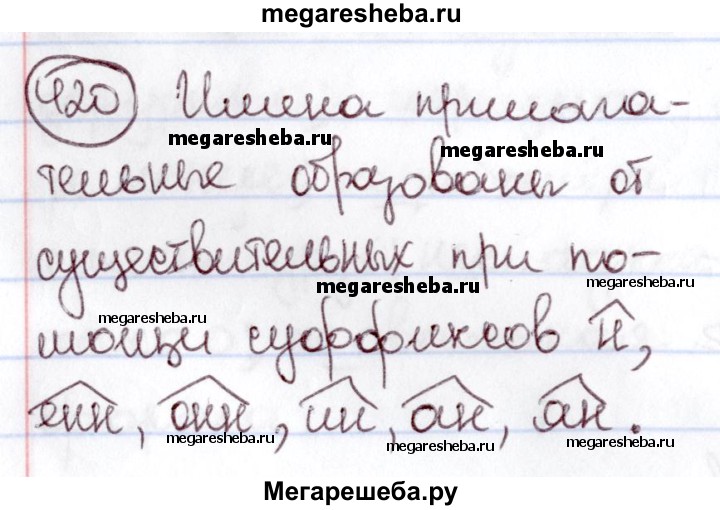 megaresheba.ru
420 Имена прилага-
megaresheba.ru
megaresheba.ru
тельные образованы от
существительных при по-
megaresheba.ru
megaresheba.ru
megaresheba.ru
мощи суффиксов н,
енн, онн, ин, ан, ян.
megaresheba.ru
megaresheba.ru
megaresheba.ru
Мегарешеба.ру